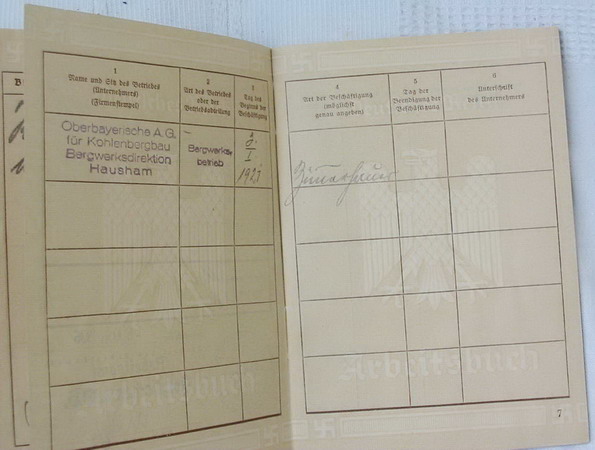 1
Name und Sitz des Betriebes
(Unternehmers)
(Firmenstempel)
2
Art des Betriebes
oder der
Betriebsabteilung
3
Tag des
Beginns der
Beschäftigung
Oberbayerische A.G.
für Kohlenbergbau
Bergwerksdirektion
Hausham
Bergwerks-
betrieb
4
Art der Beschäftigung
(möglichst
genau angeben)
5
Tag der
Beendigung der
Beschäftigung
6
Unterschrift
des Unternehmers
Arbeitsbuch
Arbeitsbuch
7